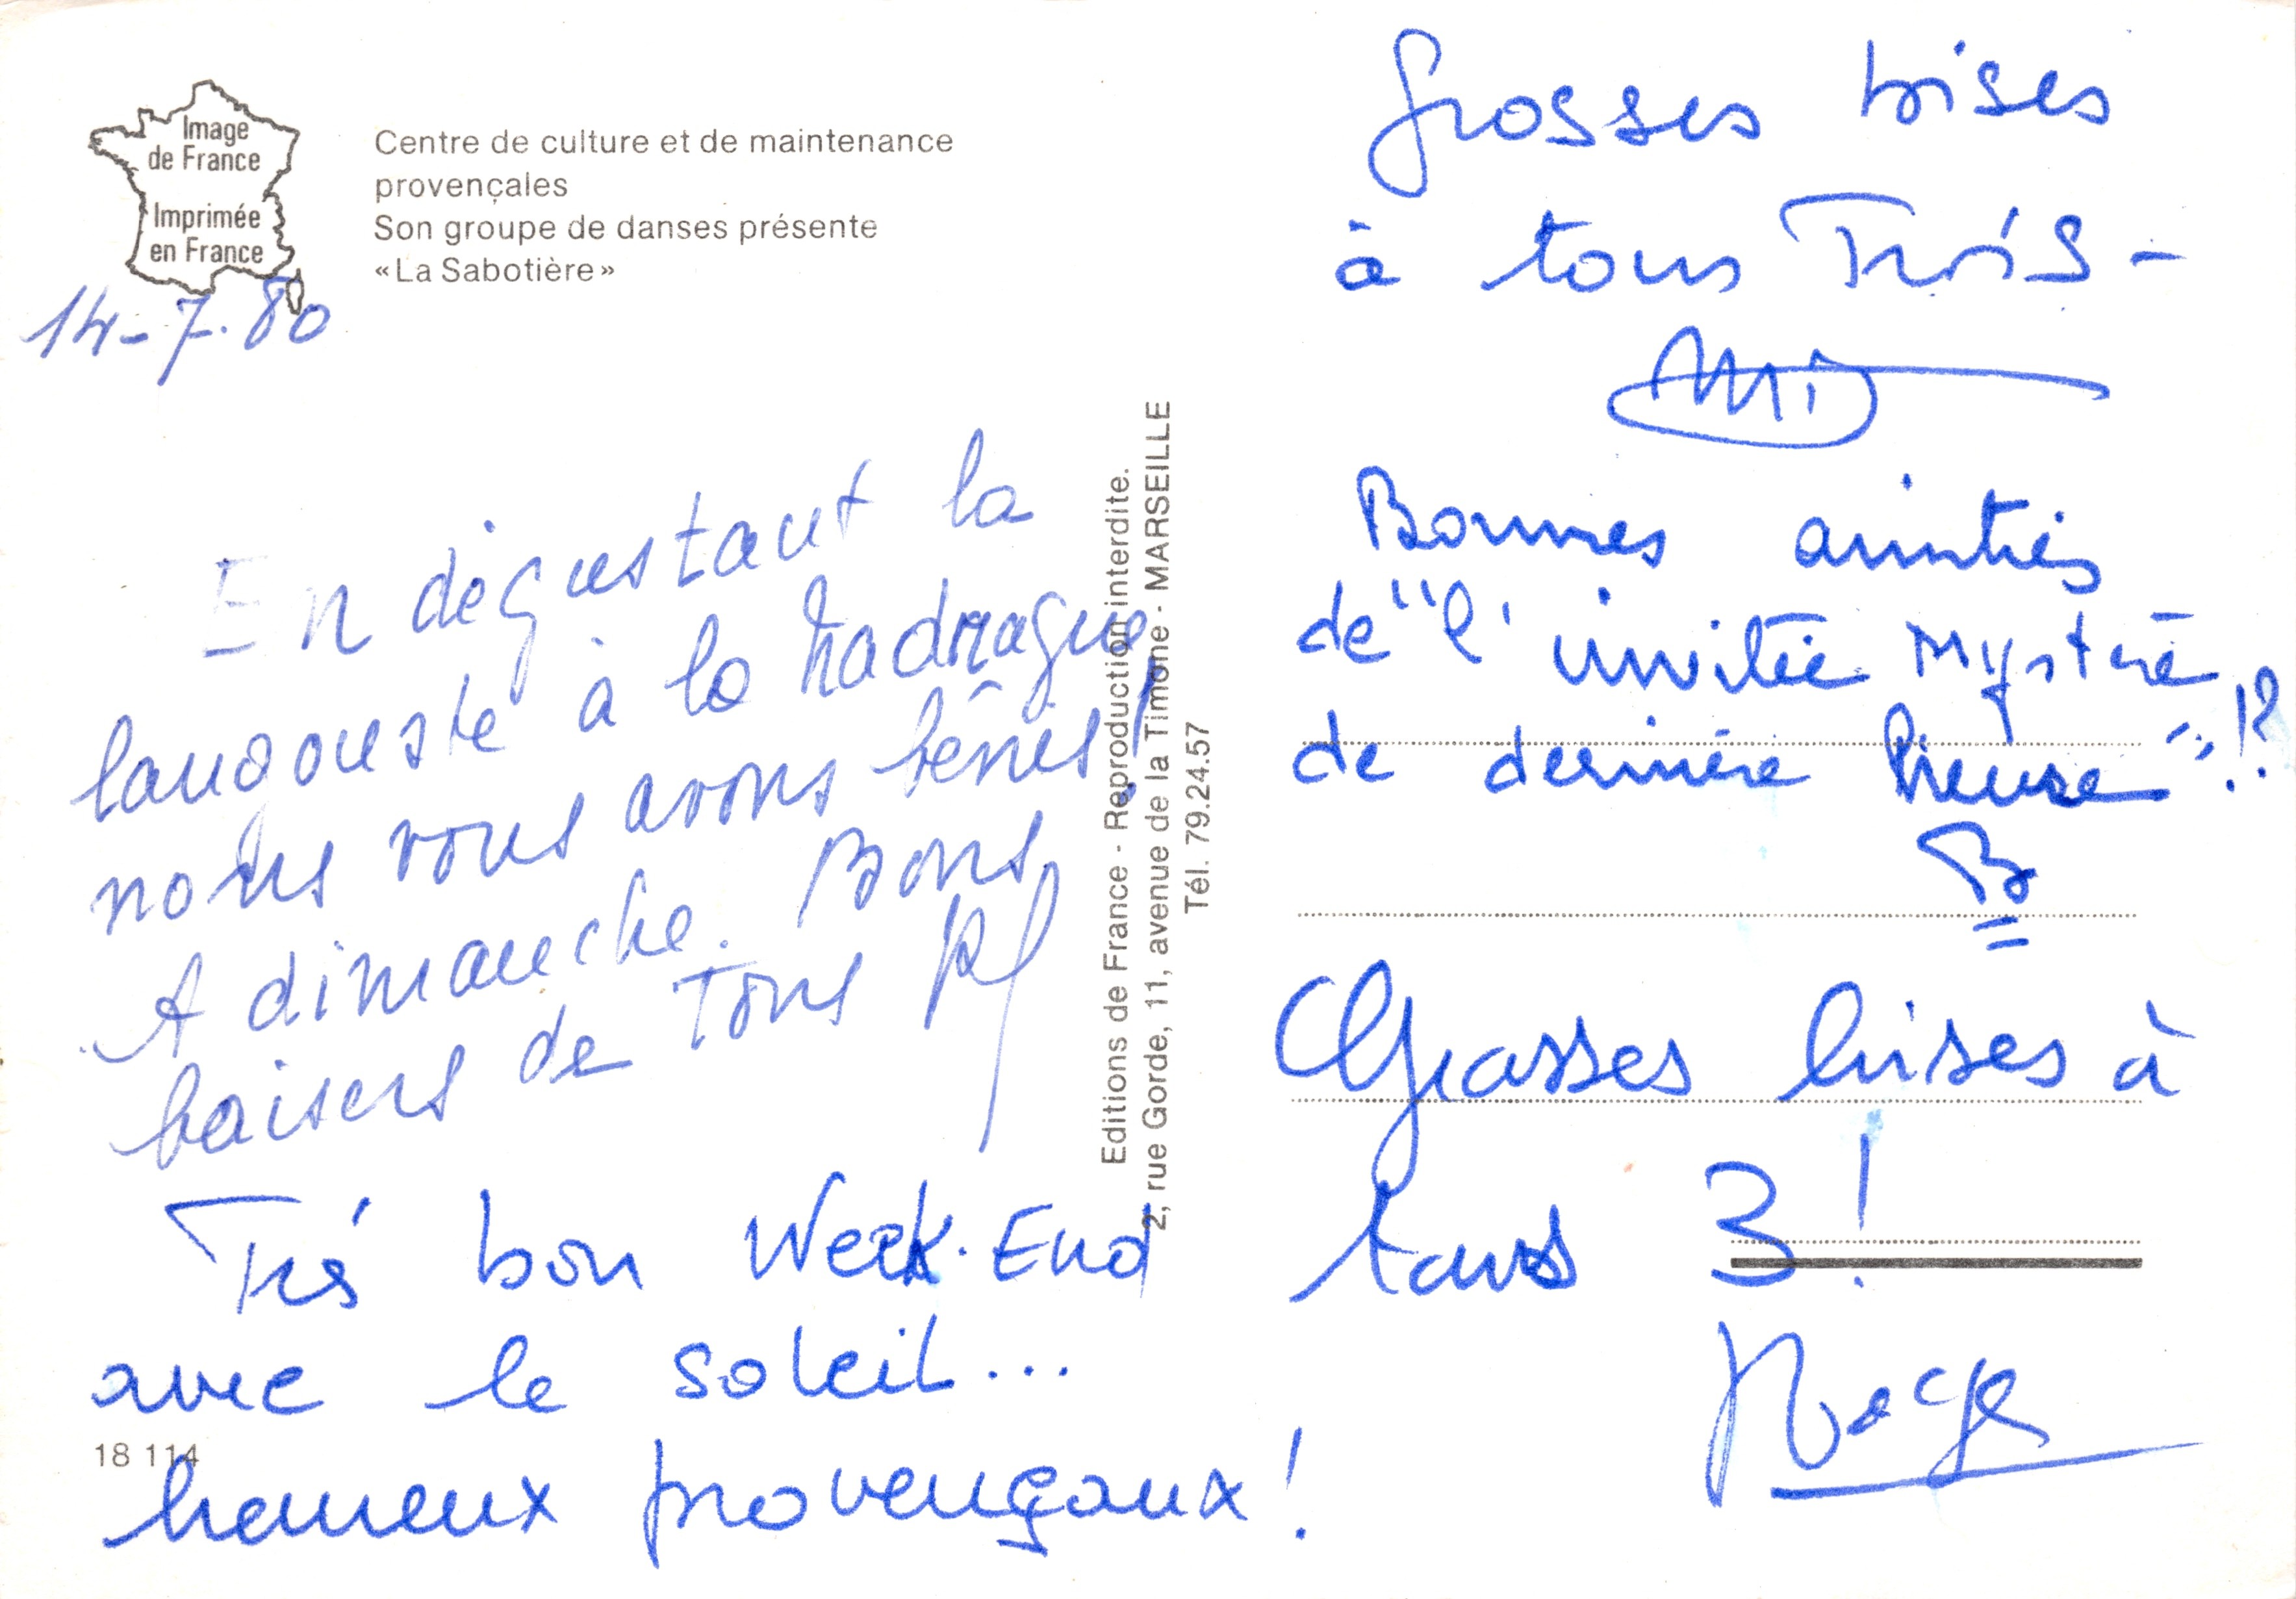 Image
de France
Imprimée
en France
Centre de culture et de maintenance
provençales
Son groupe de danses présente
« La Sabotière »
14-7.80
En dégustant la
langouste à la Madrague
nous vous avons bénis!
A dimanche. Bons
baisers de tous
Très bon Week-End
avec le soleil...
18 114
heureux provençaux!
Editions de France - Reproduction interdite.
2, rue Gorde, 11, avenue de la Timone - MARSEILLE
Tél. 79.24.57
Grosses bises
à tous Trois-
Bonnes amitiés
de "l'invitée mystère
de dernière heure"!?
B
Grosses bises à
tous 3!